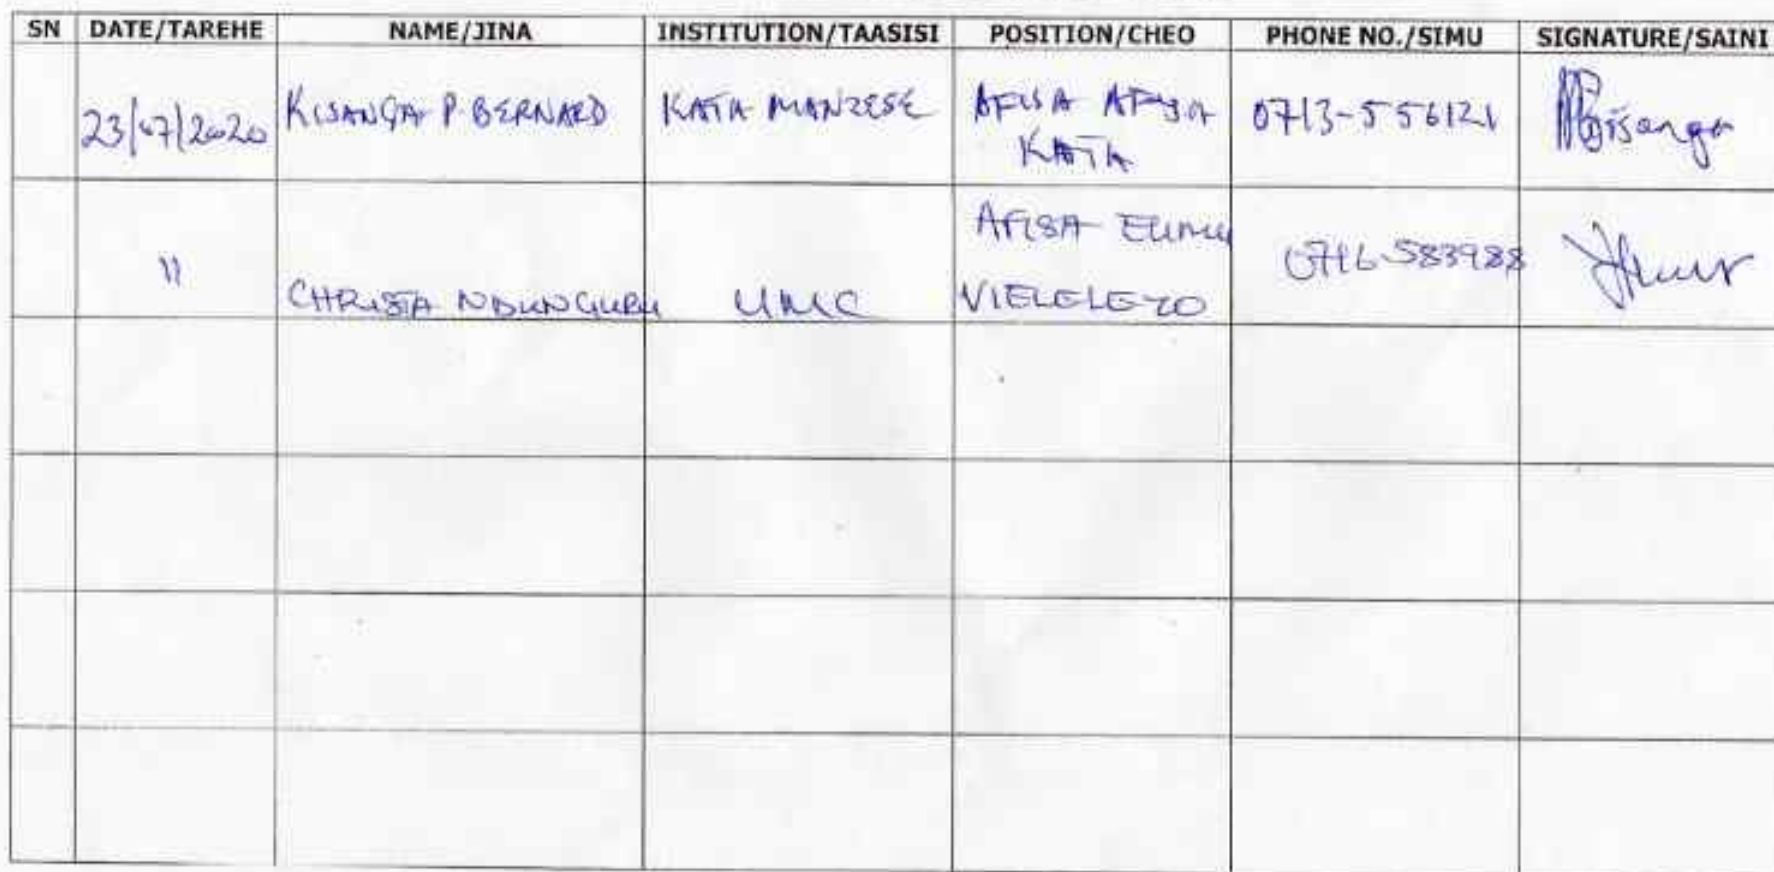 SN DATE/TAREHE NAME/JINA INSTITUTION/TAASISI POSITION/CHEO PHONE NO./SIMU SIGNATURE/SAINI
23/07/2020 KISANGA P. BERNARD KATA MANZESE AFISA AFYA 0713-556121
KATA
AFISA ELIMU
" CHRISTA NDUNGURU UMC VIELELEZO 0716-583988